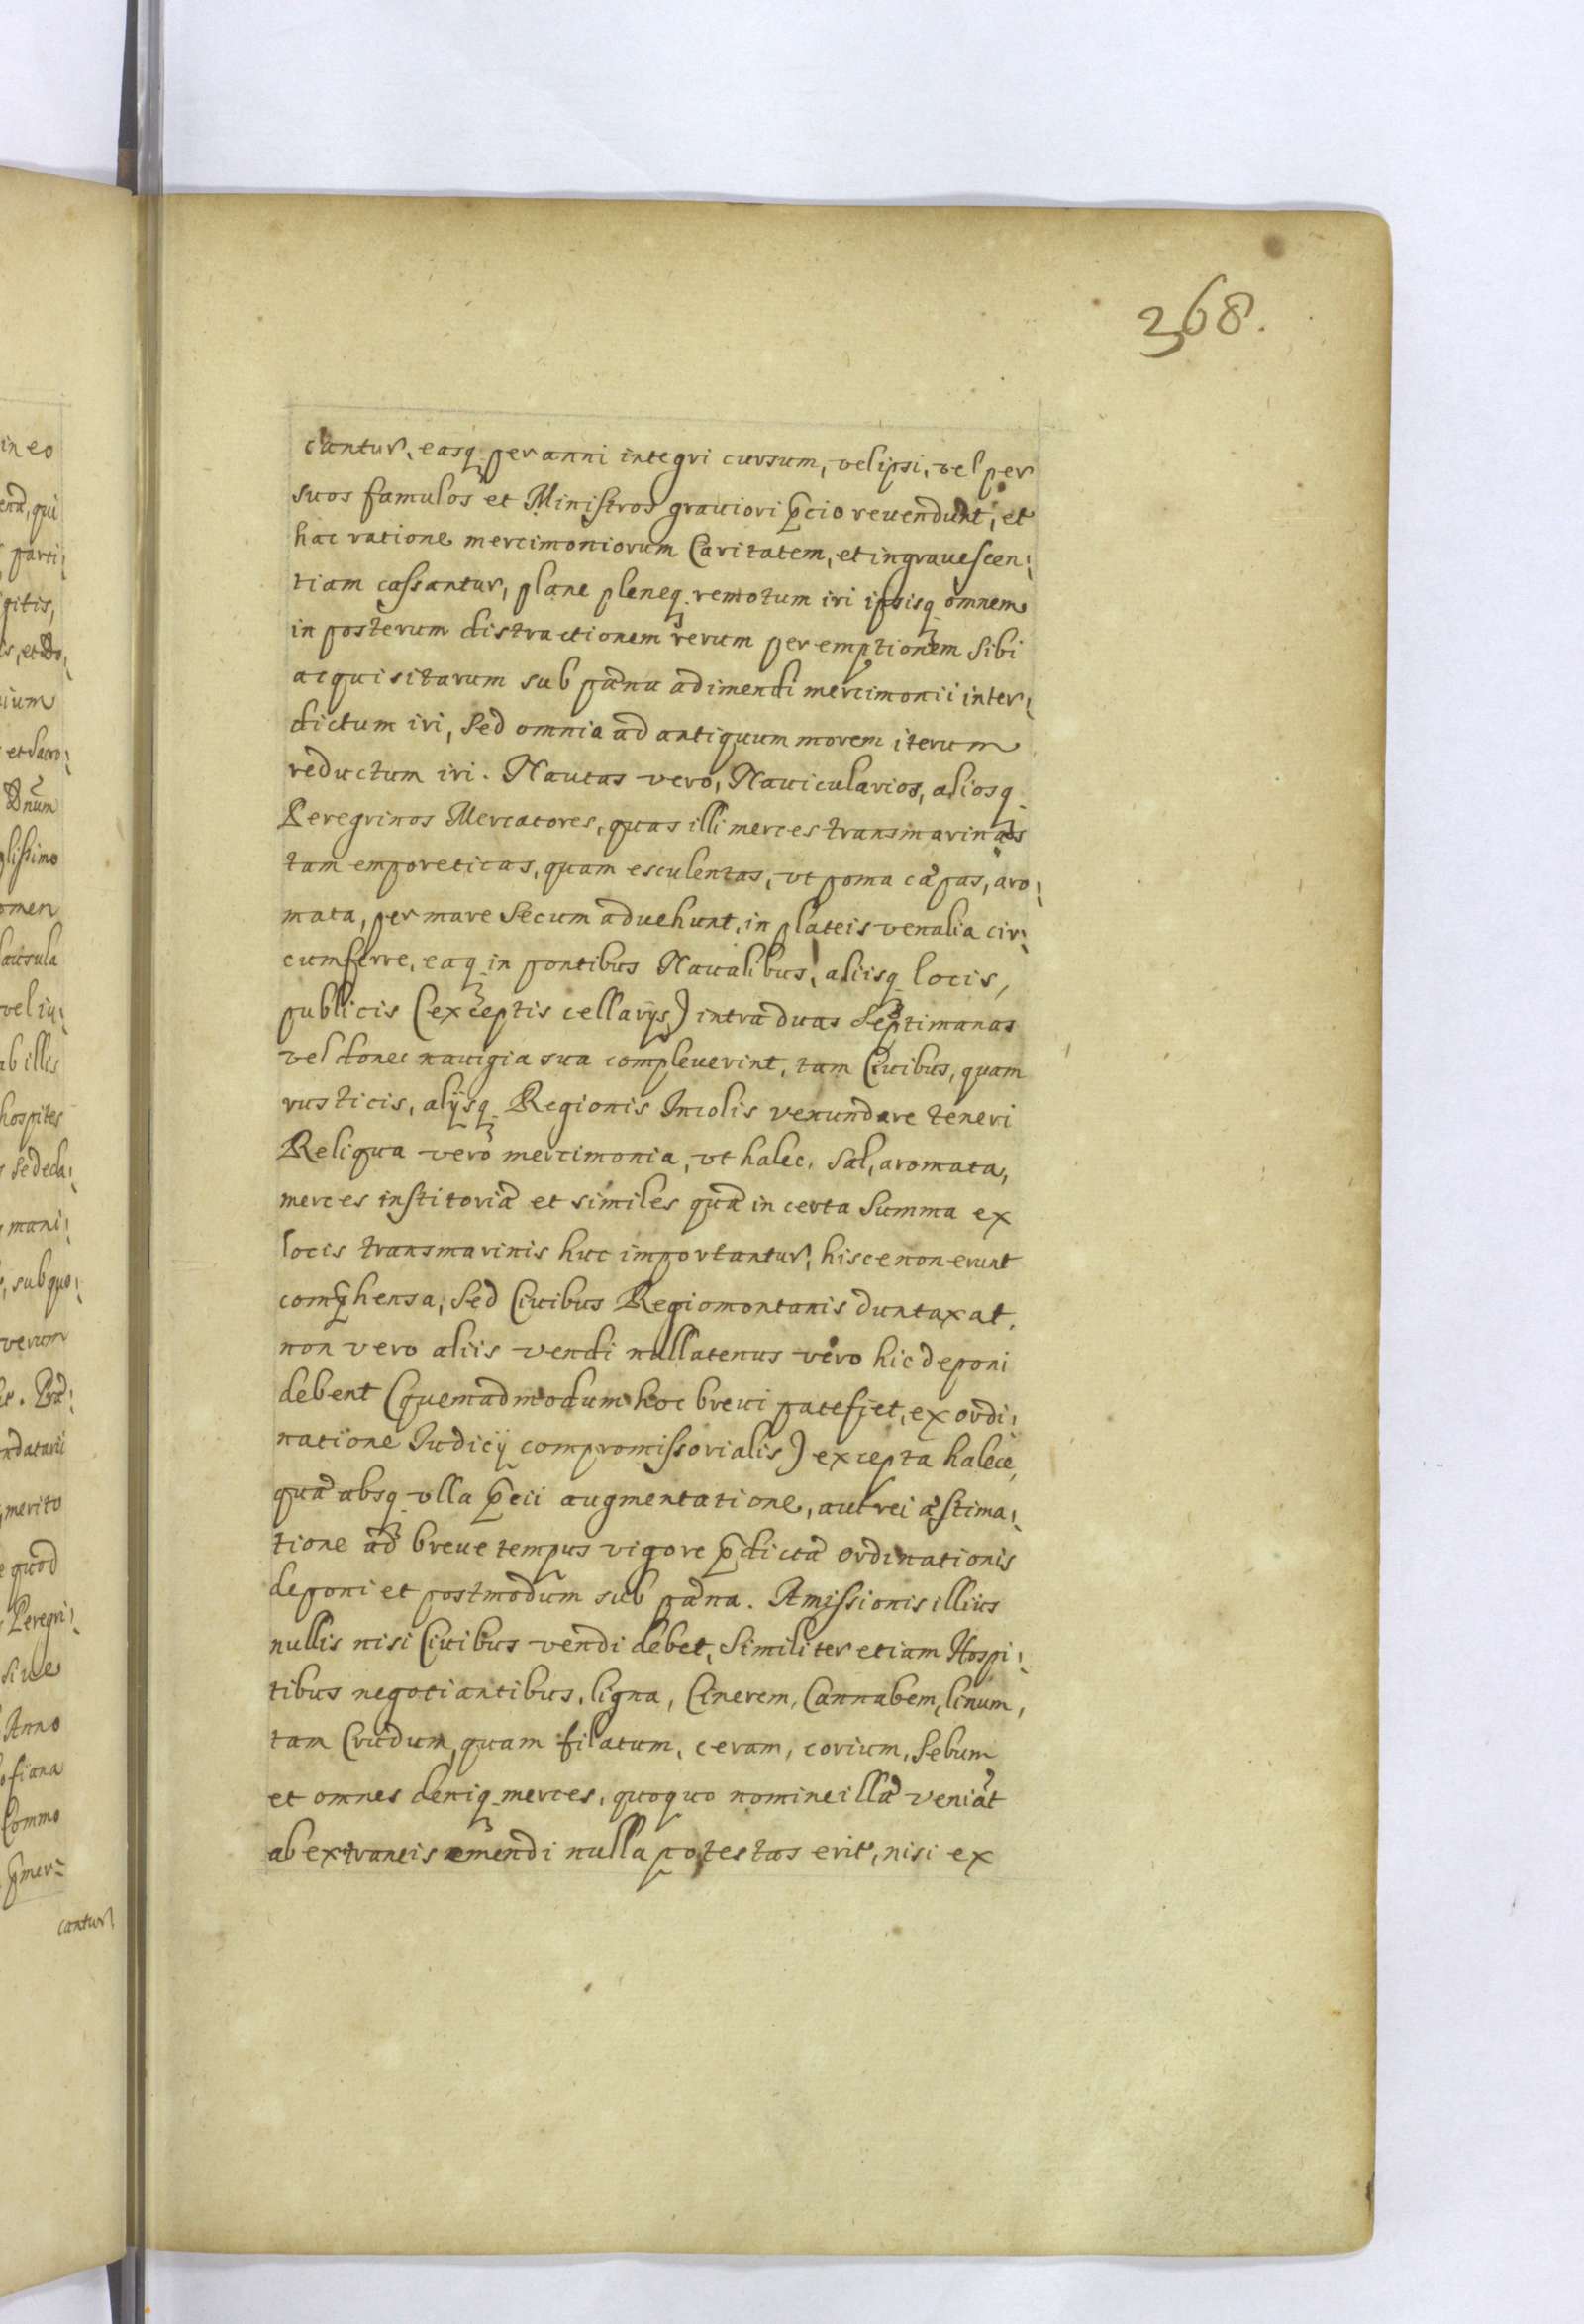 368.
cantur, easq₃ per anni integri cursum, vel ipsi, vel per
suos famulos et Ministros grauiori p̄cio reuendunt, et
hac ratione mercimoniorum Caritatem, et ingrauescen¦
tiam cassantur, plane pleneq₃ remotum iri ipsisq₃ omnem
in posterum distractionem rerum per emptionem sibi
acquisitarum sub pæna adimendi mercimonii inter¦
dictum iri, Sed omnia ad antiquum morem iterum
reductum iri. Nautas vero, Nauicularios, aliosq₃
Peregrinos Mercatores, quas illi merces transmarinas
tam emporeticas, quam esculentas, vt poma cæpas, aro¦
mata, per mare Secum aduehunt, in plateis venalia cir¦
cumferre, eaq₃ in pontibus Naualibus, aliisq₃ locis,
publicis (exceptis cellarijs) intra duas Septimanas
vel donec nauigia sua compleuerint, tam Ciuibus, quam
rusticis, alijsq₃ Regionis Incolis venundare teneri
Reliqua vero mercimonia, vt halec, Sal, aromata,
merces institoriæ et similes quæ in certa Summa ex
locis transmarinis huc importantur, hisce non erunt
comp̄hensa, Sed Ciuibus Regiomontanis duntaxat,
non vero aliis vendi nullatenus vero hic deponi
debent (quemadmodum hoc breui patefiet, ex ordi¦
natione Iudicij compromissorialis) excepta halece,
quæ absq₃ vlla p̄cii augmentatione, aut rei æstima¦
tione ad breue tempus vigore p̄dictæ ordinationis
deponi et postmodum sub pæna. Amissionis illius
nullis nisi Ciuibus vendi debet, Similiter etiam Hospi¦
tibus negotiantibus, ligna, Cinerem, Cannabem, linum,
tam Crudum, quam filatum, ceram, corium, Sebum
et omnes deniq₃ merces, quoquo nomine illæ veniāt
ab extraneis emendi nulla potestas erit, nisi ex
in eo
parti¦
gitis,
ium
Dnum
omen
vel iu¦
ab illis
hospites
mani¦
, sub quo¦
verum
ndatarii
merito
quod
Peregri¦
siue
Anno
Commo
cantur